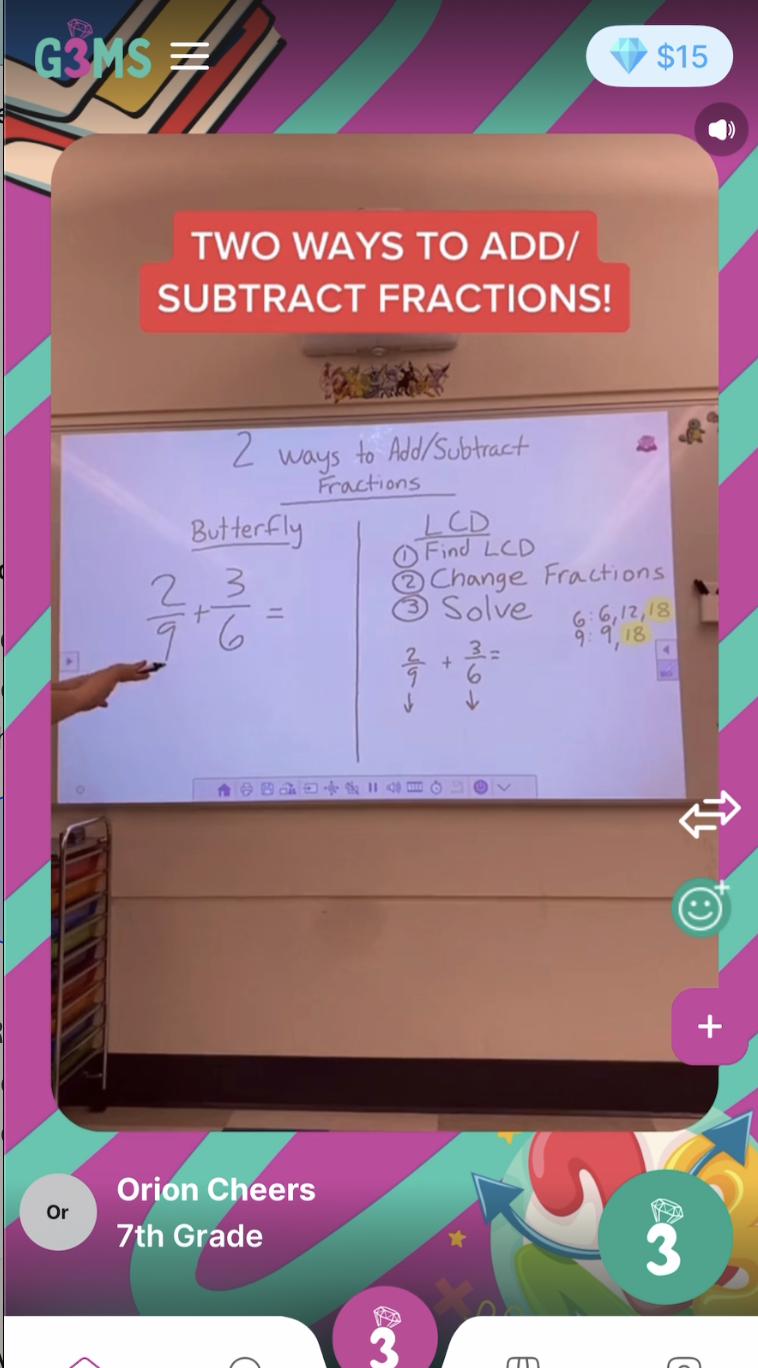 G3MS
$15
TWO WAYS TO ADD/
SUBTRACT FRACTIONS!
2 ways to Add/Subtract
Fractions
Butterfly
2/9 + 3/6 =
LCD
① Find LCD
② Change Fractions
③ Solve
6: 6, 12, 18
9: 9, 18
2/9 + 3/6 =
Or
Orion Cheers
7th Grade
3
3